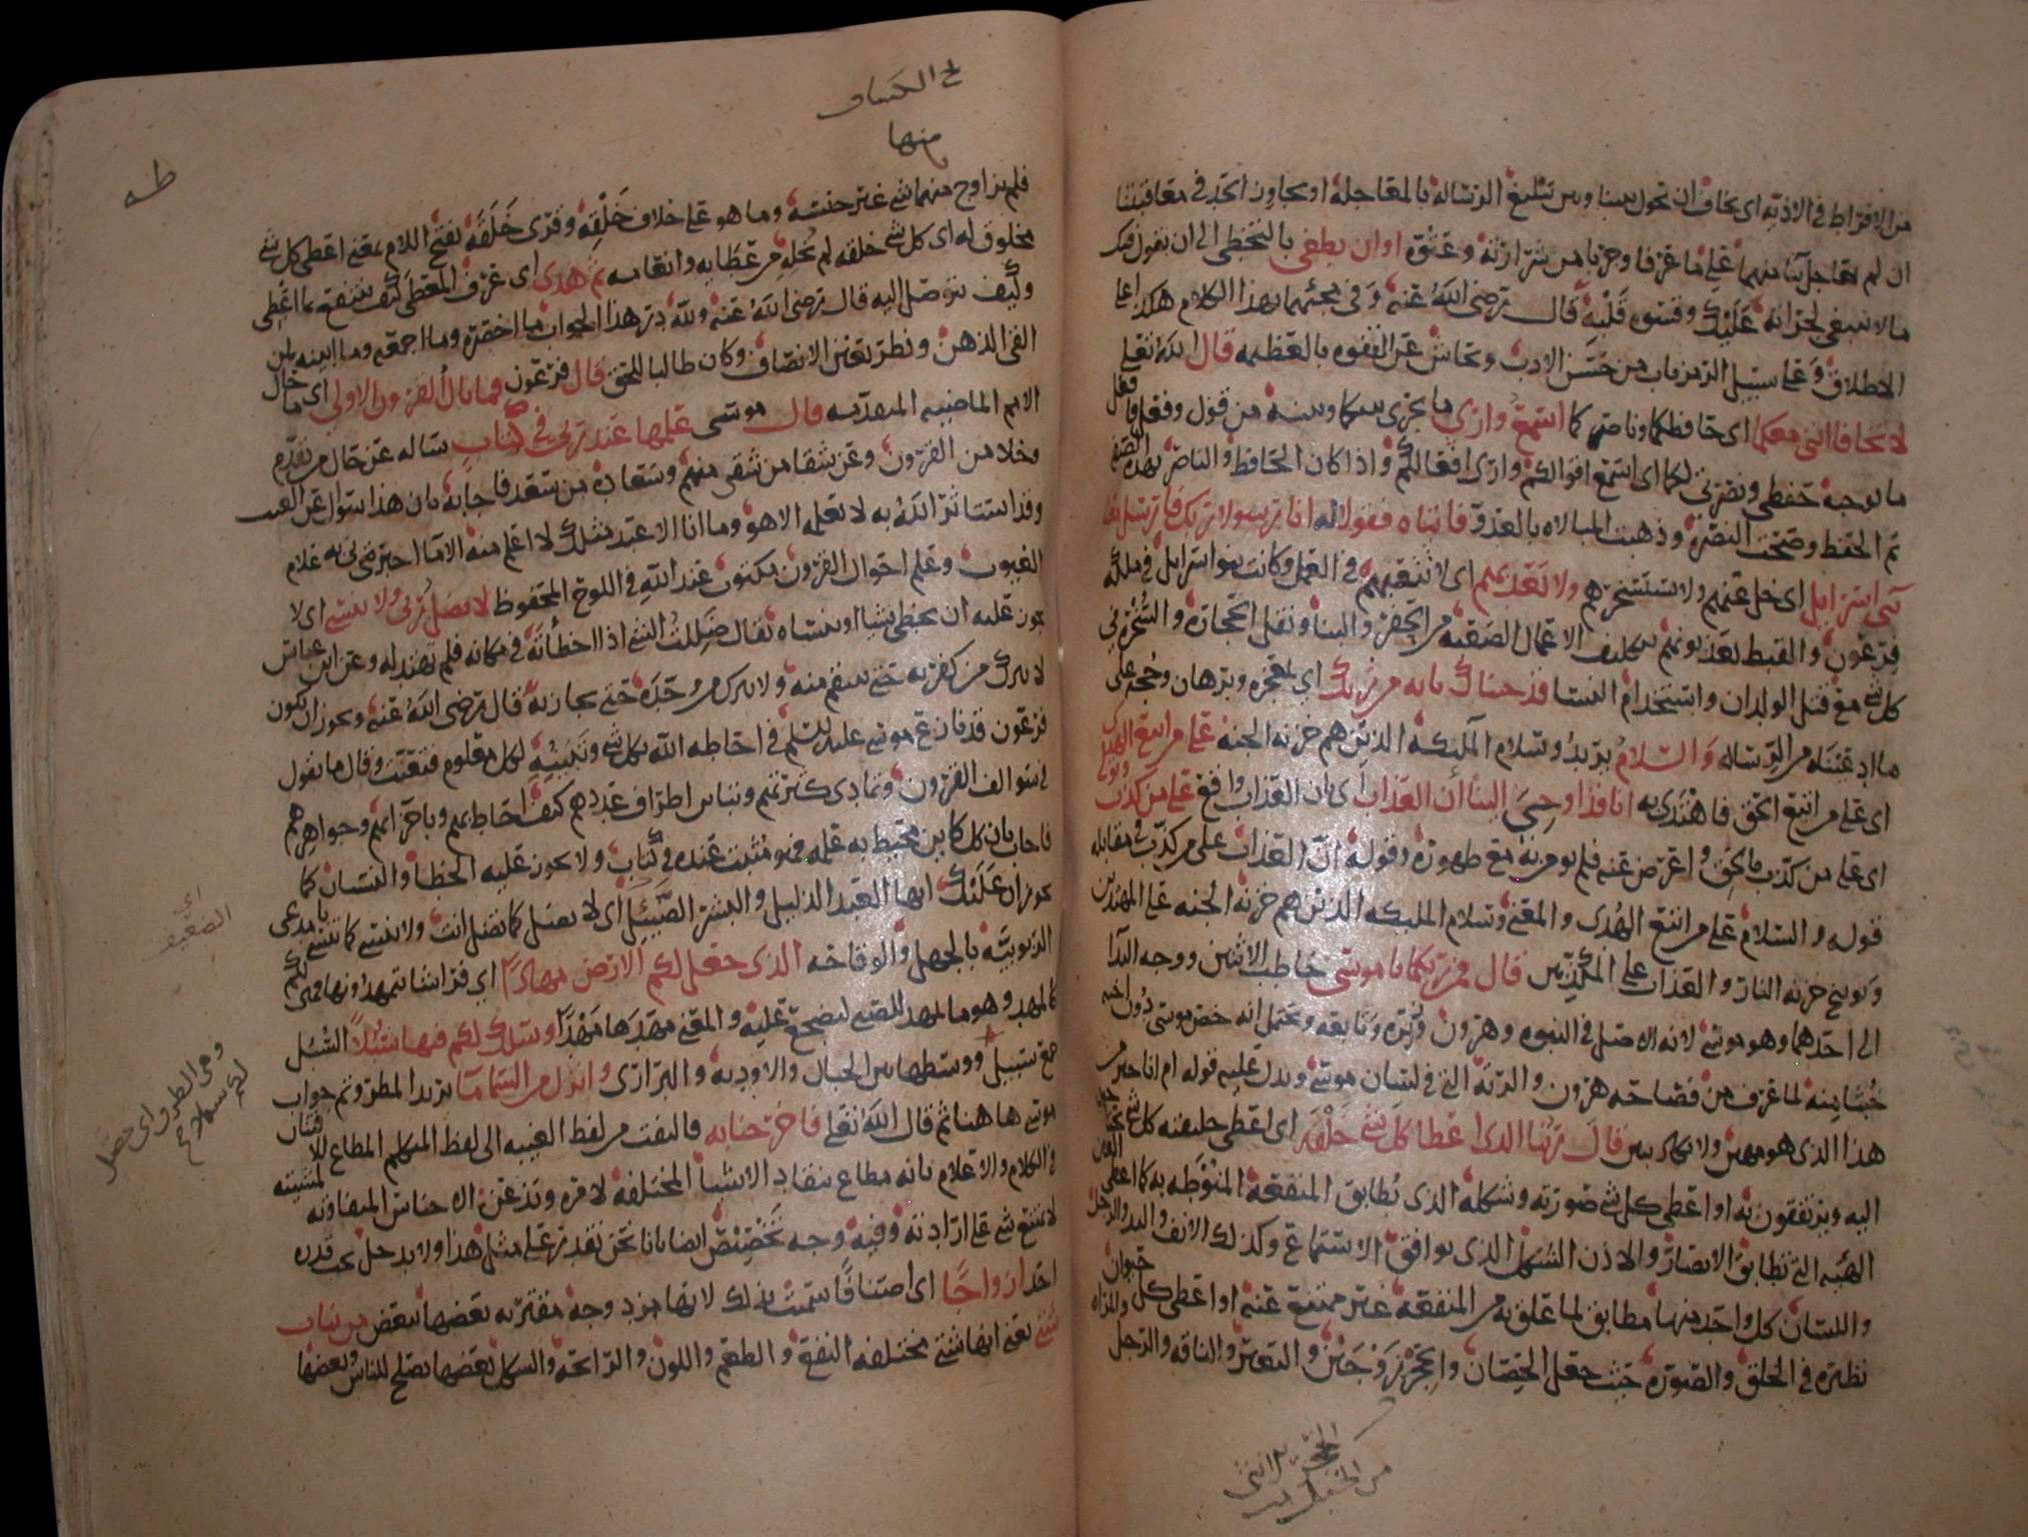 من الافراط في الاذية اي نخاف ان تحول بيننا وبين تبليغ الرسالة بالمعاجلة او يجاوز الحد في معاقبتنا
ان لم يعاجل بنا منهما على ما عرفا وجربا من شرارته وعتوه او ان يطغى بالتخطي الى ان يقول فيك
ما لا ينبغي لجرأته عليك وقسوة قلبه قال رضي الله عنه وفي مجيئهما بهذا الكلام هكذا على
الاطلاق وعلى سبيل الرمز باب من حسن الادب وتحاش عن التفوه بالعظيمة قال الله تعالى
لا تخافا انني معكما اي حافظكما وناصركما اسمع وارى ما يجري بينكما وبينه من قول وفعل فافعل
ما توجبه حفظي ونصرتي لكما اي اسمع اقوالكم وارى افعالكم واذا كان الحافظ والناصر بهذه الصفة
تم الحفظ وصحت النصرة وذهبت المبالاة بالعدو فاتياه فقولا له انا رسولا ربك فارسل معنا
بني اسرائيل اي خل عنهم ولا تستسخرهم ولا تعذبهم اي لا تتعبهم في العمل وكانت بنو اسرائيل في ملكة
فرعون والقبط يعذبونهم بتكليف الاعمال الصعبة من الحفر والبنا ونقل الحجارة والسخرة في
كل شي مع قتل الولدان واستخدام النسا قد جئناك باية من ربك اي بمعجزة وبرهان وحجة على
ما ادعيناه من الرسالة والسلام يريد وسلام الملئكة الذين هم خزنة الجنة على من اتبع الهدى
اي على من اتبع الحق فاهتدى به انا قد اوحي الينا ان العذاب اي ان العذاب واقع على من كذب وتولى
اي على من كذب بالحق واعرض عنه فلم يومن به مع ظهوره وقوله ان العذاب على من كذب في مقابلة
قوله والسلام على من اتبع الهدى والمعنى وسلام الملئكة الذين هم خزنة الجنة على المهتدين
وتوبيخ خزنة النار والعذاب على المكذبين قال فمن ربكما يا موسى خاطب الاثنين ووجه الندا
الى احدهما وهو موسى لانه الاصل في النبوة وهرون وزيره وتابعه ويحتمل انه خص موسى دون اخيه
خبثا منه لما عرف من فصاحة هرون والرتة التي في لسان موسى ويدل عليه قوله ام انا خير من
هذا الذي هو مهين ولا يكاد يبين قال ربنا الذي اعطا كل شي خلقه اي اعطى خليقته كل شي تحتاج
اليه ويرتفقون به او اعطى كل شي صورته وشكله الذي يطابق المنفعة المنوطة به كما اعطى العين
الهيئة التي تطابق الابصار والاذن الشكل الذي يوافق الاستماع وكذلك الانف واليد والرجل
واللسان كل واحد منها مطابق لما علق به من المنفعة غير ممتنع عنه او اعطى كل حيوان
نظيره في الخلق والصورة حيث جعل الحصان والحجر زوجين والبعير والناقة والرجل والمراة
الحجر الانثى
من الخيل
ج الكشاف
منها
طه
فلم يزاوج منهما شي غير جنسه وما هو على خلاف خلقه وقرى خلقه بفتح اللام يعني اعطى كل شي
مخلوق له اي كل شي خلقه لم يخله من عطايه وانعامه ثم هدى اي عرف المعطى كيف ينتفع بما اعطي
وكيف يتوصل اليه قال رضي الله عنه ولله در هذا الجواب ما اخصره وما اجمعه وما ابينه لمن
القى الذهن ونظر بعين الانصاف وكان طالبا للحق قال فرعون فما بال القرون الاولى اي ما حال
الامم الماضية المتقدمة قال موسى علمها عند ربي في كتاب ساله عن حال من تقدم
وخلا من القرون وعن شقا من شقي منهم وسعادة من سعد فاجابه بان هذا سؤال عن الغيب
وقد استاثر الله به لا يعلمه الا هو وما انا الا عبد مثلك لا اعلم منه الا ما اخبرني به علام
الغيوب وعلم احوال القرون مكتوب عند الله في اللوح المحفوظ لا يضل ربي ولا ينسى اي لا
يجوز عليه ان يخطي شيا او ينساه يقال ضللت الشي اذا اخطاته في مكانه فلم تهتد له وعن ابن عباس
لا يترك من كفر به حتى ينتقم منه ولا يترك من وحده حتى يجازيه قال رضي الله عنه ويجوز ان يكون
فرعون قد نازع موسى عليه السلم في احاطة الله بكل شي وتبينه لكل معلوم فتعنت وقال ما تقول
في سوالف القرون وتمادي كثرتهم وتباين اطراف عددهم كيف احاط بهم وباجزائهم وجواهرهم
فاجاب بان كل كاين محيط به علمه فهو مثبت عنده في كتاب ولا يجوز عليه الخطا والنسيان كما
يجوزان عليك ايها العبد الذليل والبشر الضئيل اي لا يضل كما تضل انت ولا ينسى كما تنسى يا مدعي
الربوبية بالجهل والوقاحة الذي جعل لكم الارض مهادا اي فراشا تمهدونها فهي لكم
كالمهد وهو ما يمهد للصبي ليضجع عليه والمعنى مهدها مهدا وسلك لكم فيها سبلا السبل
جمع سبيل ووسطها بين الجبال والاودية والبراري وانزل من السما ما يريد المطر وتم جواب
موسى هاهنا ثم قال الله تعالى فاخرجنا به فالتفت من لفظ الغيبة الى لفظ المتكلم المطاع للافتنان
في الكلام والاعلام بانه مطاع تنقاد الاشيا المختلفة لامره وتذعن الاجناس المتفاوتة لمشيئته
لا يمتنع شي على ارادته وفيه وجه تخصيص ايضا بانا نحن نقدر على مثل هذا ولا يدخل تحت قدرة
احد ازواجا اي اصنافا سميت بذلك لانها مزدوجة مقترنة بعضها ببعض من نبات
شتى يعني انها شتى مختلفة النفع والطعم واللون والرائحة والشكل بعضها يصلح للناس وبعضها
اي
الضعيف
وهي الطرق اي حصل
لكم